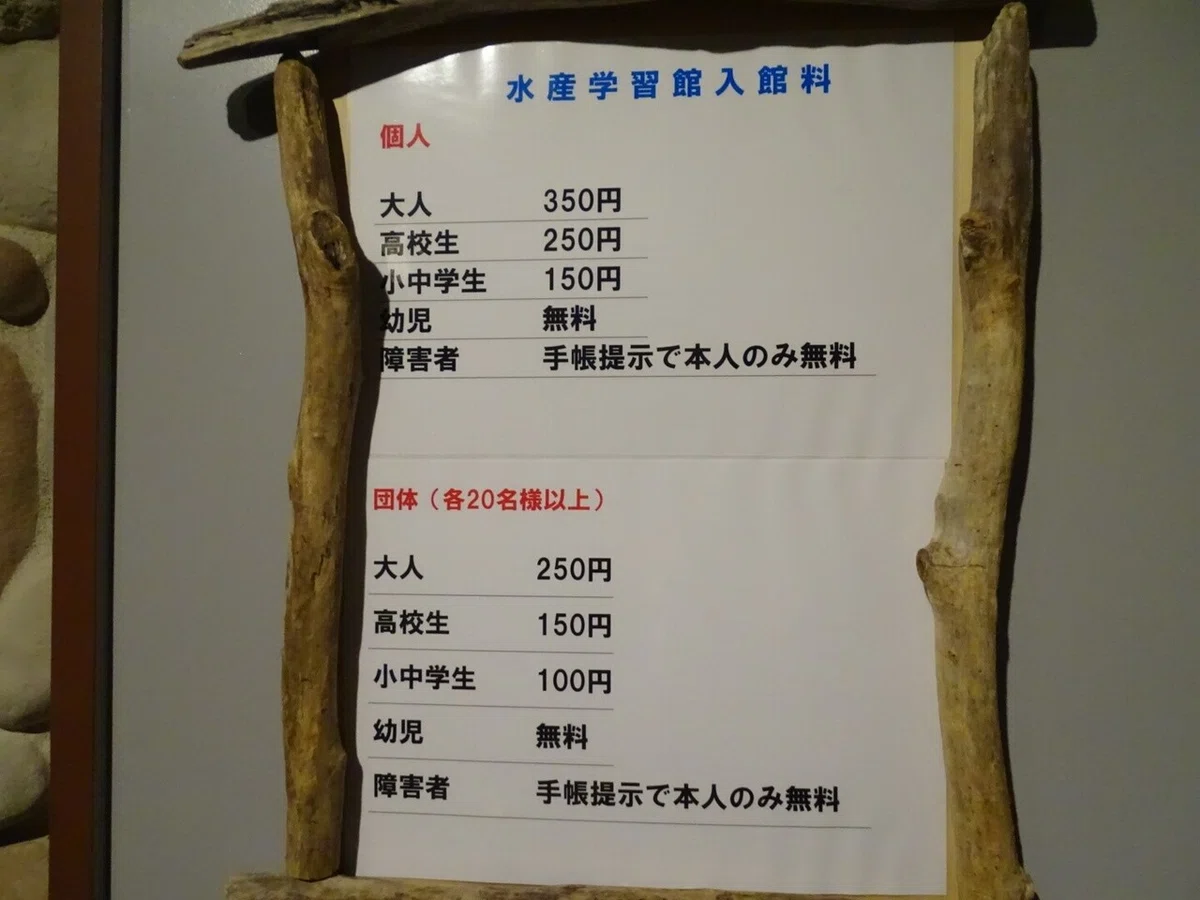 水産学習館入館料
個人
大人 350円
高校生 250円
小中学生 150円
幼児 無料
障害者 手帳提示で本人のみ無料
団体（各20名様以上）
大人 250円
高校生 150円
小中学生 100円
幼児 無料
障害者 手帳提示で本人のみ無料